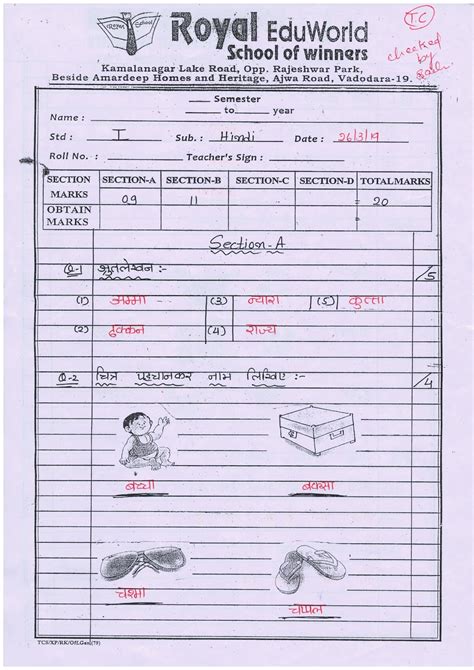 Royal School
Royal EduWorld
School of winners
Kamalanagar Lake Road, Opp. Rajeshwar Park,
Beside Amardeep Homes and Heritage, Ajwa Road, Vadodara-19.
TC
checked
by
____ Semester
____ to ____ year
Name :
Std : I Sub. : Hindi Date : 26/3/19
Roll No. : Teacher's Sign :
SECTION SECTION-A SECTION-B SECTION-C SECTION-D TOTALMARKS
MARKS 09 11 20
OBTAIN
MARKS
Section-A
Q-1 श्रुतलेखन :- /5
(1) अम्मा (3) न्यारा (5) कुत्ता
(2) ढक्कन (4) राज्य
Q-2 चित्र पहचानकर नाम लिखिए :- /4
बच्चा बक्सा
चश्मा चप्पल
TCS/XP/RK/Off.Gen(79)